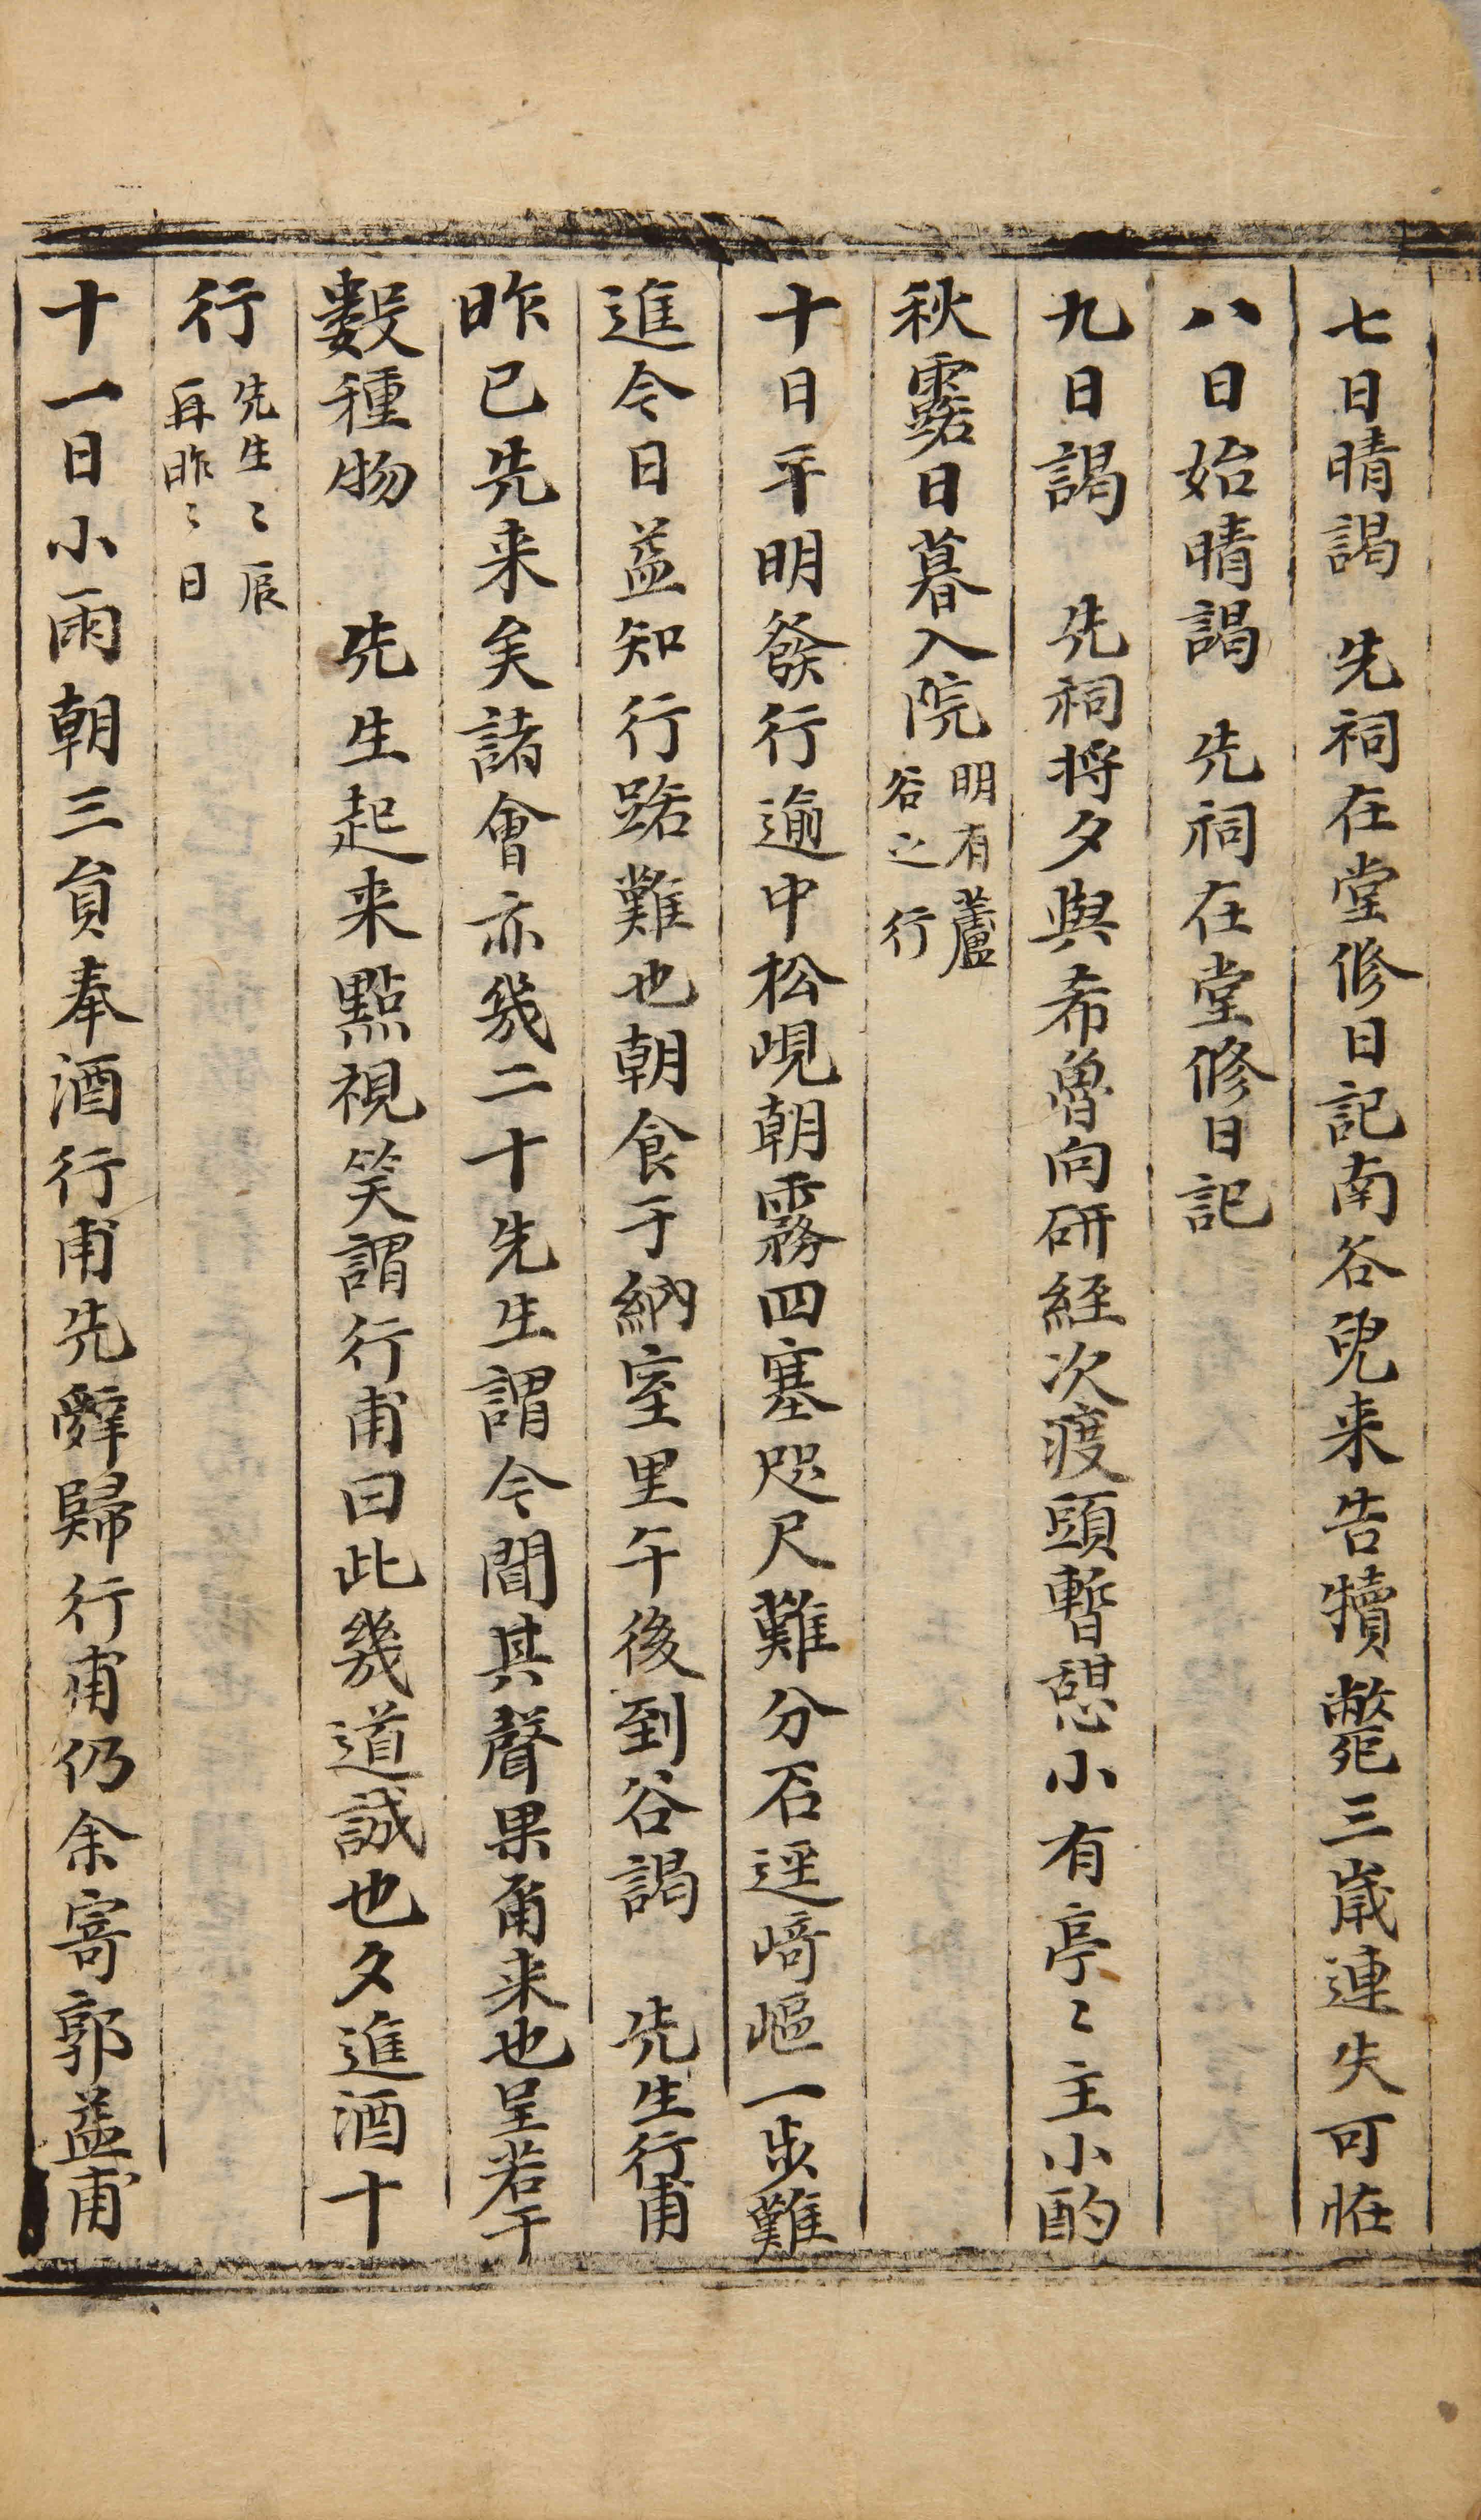 七日晴謁 先祠在堂修日記南谷兒来告犢斃三歲連失可恠
八日始晴謁 先祠在堂修日記
九日謁 先祠将夕與希魯向硏経次渡頭暫憩小有亭〻主小酌
秋露日暮入院明有蘆谷之行
十日平明發行逾中松峴朝霧四塞咫尺難分石逕崎嶇一步難
進今日益知行路難也朝食于納室里午後到谷謁 先生行甫
昨已先来矣諸會亦幾二十先生謂令聞其聲果甭来也呈若干
數種物 先生起来點視笑謂行甫曰此幾道誠也夕進酒十
行先生〻辰再昨〻日
十一日小雨朝三員奉酒行甫先辤歸行甫仍余寄郭益甫